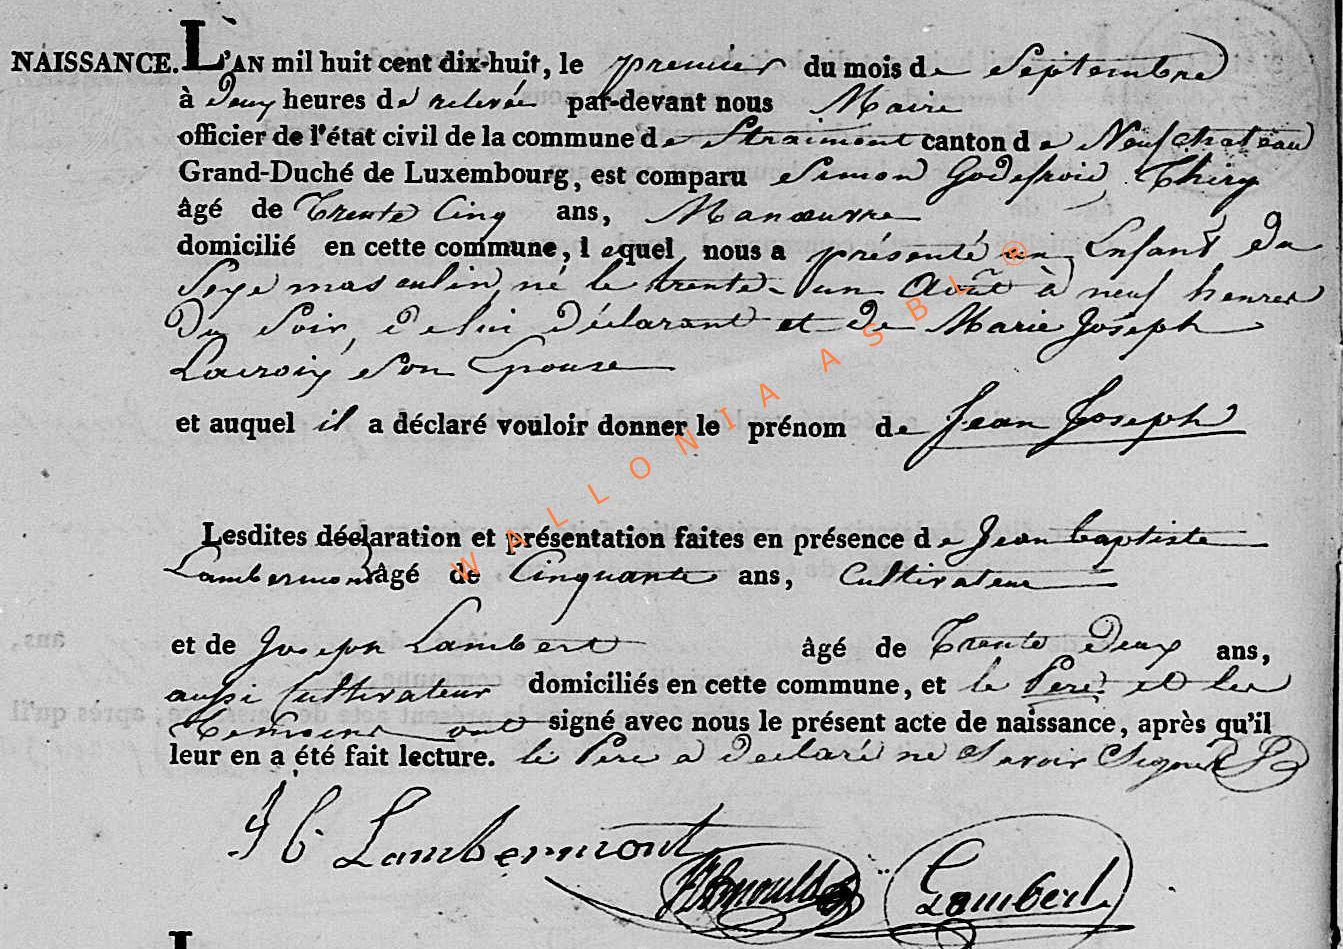 NAISSANCE. L'AN mil huit cent dix-huit, le premier du mois de Septembre
à deux heures de relevée par-devant nous Maire
officier de l'état civil de la commune de Straimont canton de Neufchateau
Grand-Duché de Luxembourg, est comparu Simon Godefroid Thiry
âgé de Trente Cinq ans, Manœuvre
domicilié en cette commune, lequel nous a présenté un Enfant du
Sexe masculin, né le trente-un Août à neuf heures
Du Soir, de lui déclarant et de Marie Joseph
Lacroix son Epouse
et auquel il a déclaré vouloir donner le prénom de Jean Joseph
Lesdites déclaration et présentation faites en présence de Jean baptiste
Lambermont âgé de Cinquante ans, Cultivateur
et de Joseph Lambert âgé de Trente Deux ans,
aussi Cultivateur domiciliés en cette commune, et le Pere et les
temoins ont signé avec nous le présent acte de naissance, après qu'il
leur en a été fait lecture. le Pere a déclaré ne Savoir Signer
J b Lambermont
Lambert
WALLONIA ASBL ®